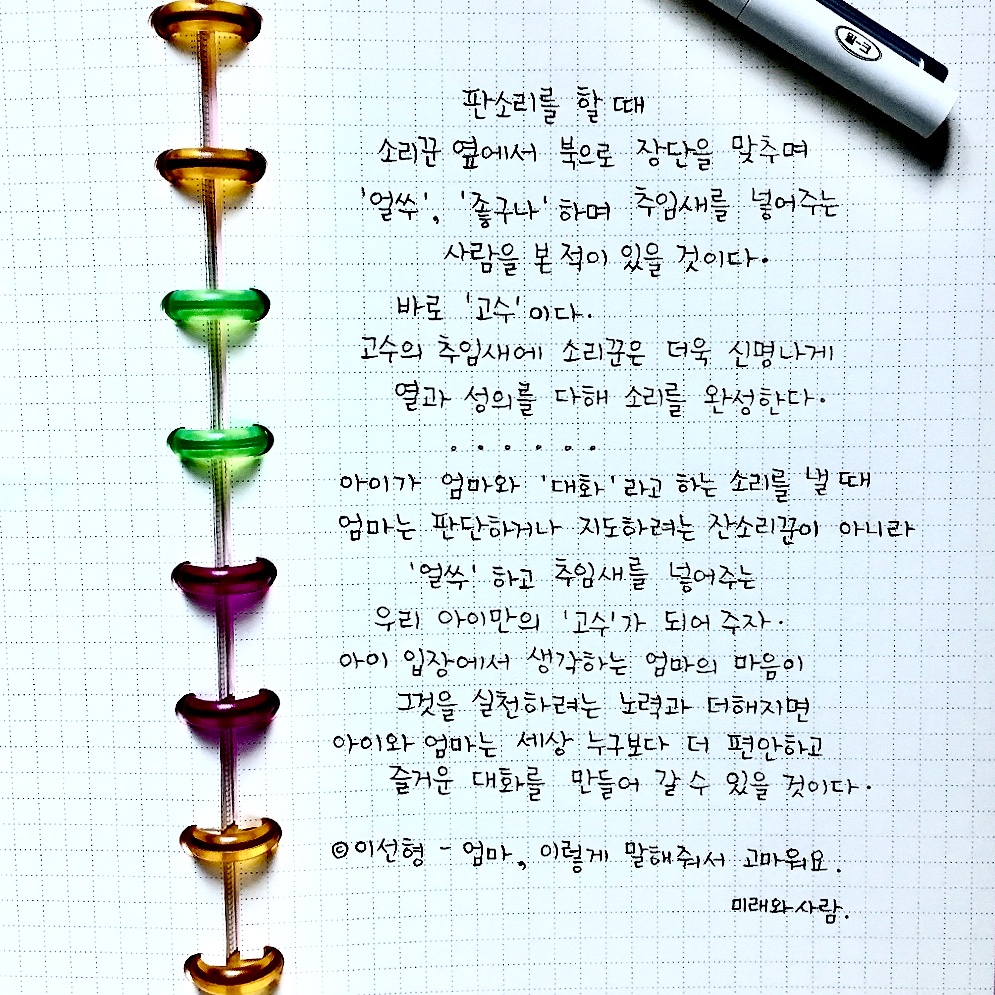 판소리를 할 때
소리꾼 옆에서 북으로 장단을 맞추며
'얼쑥', '좋구나' 하며 추임새를 넣어주는
사람을 본 적이 있을 것이다.
바로 '고수'이다.
고수의 추임새에 소리꾼은 더욱 신명나게
열과 성의를 다해 소리를 완성한다.
......
아이가 엄마와 '대화'라고 하는 소리를 낼 때
엄마는 판단하거나 지도하려는 잔소리꾼이 아니라
'얼쑥' 하고 추임새를 넣어주는
우리 아이만의 '고수'가 되어 주자.
아이 입장에서 생각하는 엄마의 마음이
그것을 실천하려는 노력과 더해지면
아이와 엄마는 세상 누구보다 더 편안하고
즐거운 대화를 만들어 갈 수 있을 것이다.
©이선형 - 엄마, 이렇게 말해줘서 고마워요.
미래와 사람.